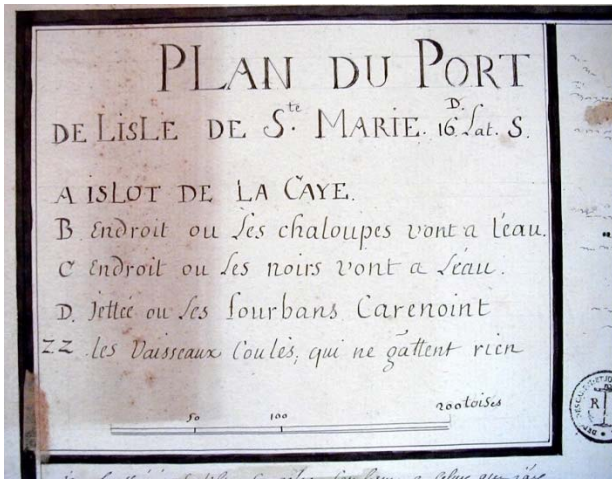 PLAN DU PORT
DE LISLE DE Ste. MARIE. 16 D. Lat. S.
A ISLOT DE LA CAYE.
B Endroit ou les chaloupes vont a l'eau.
C Endroit ou les noirs vont a l'eau.
D. Jettée ou les fourbans Carenoint
ZZ les Vaisseaux Coulés, qui ne gâttent rien
50 100 200 toises
R